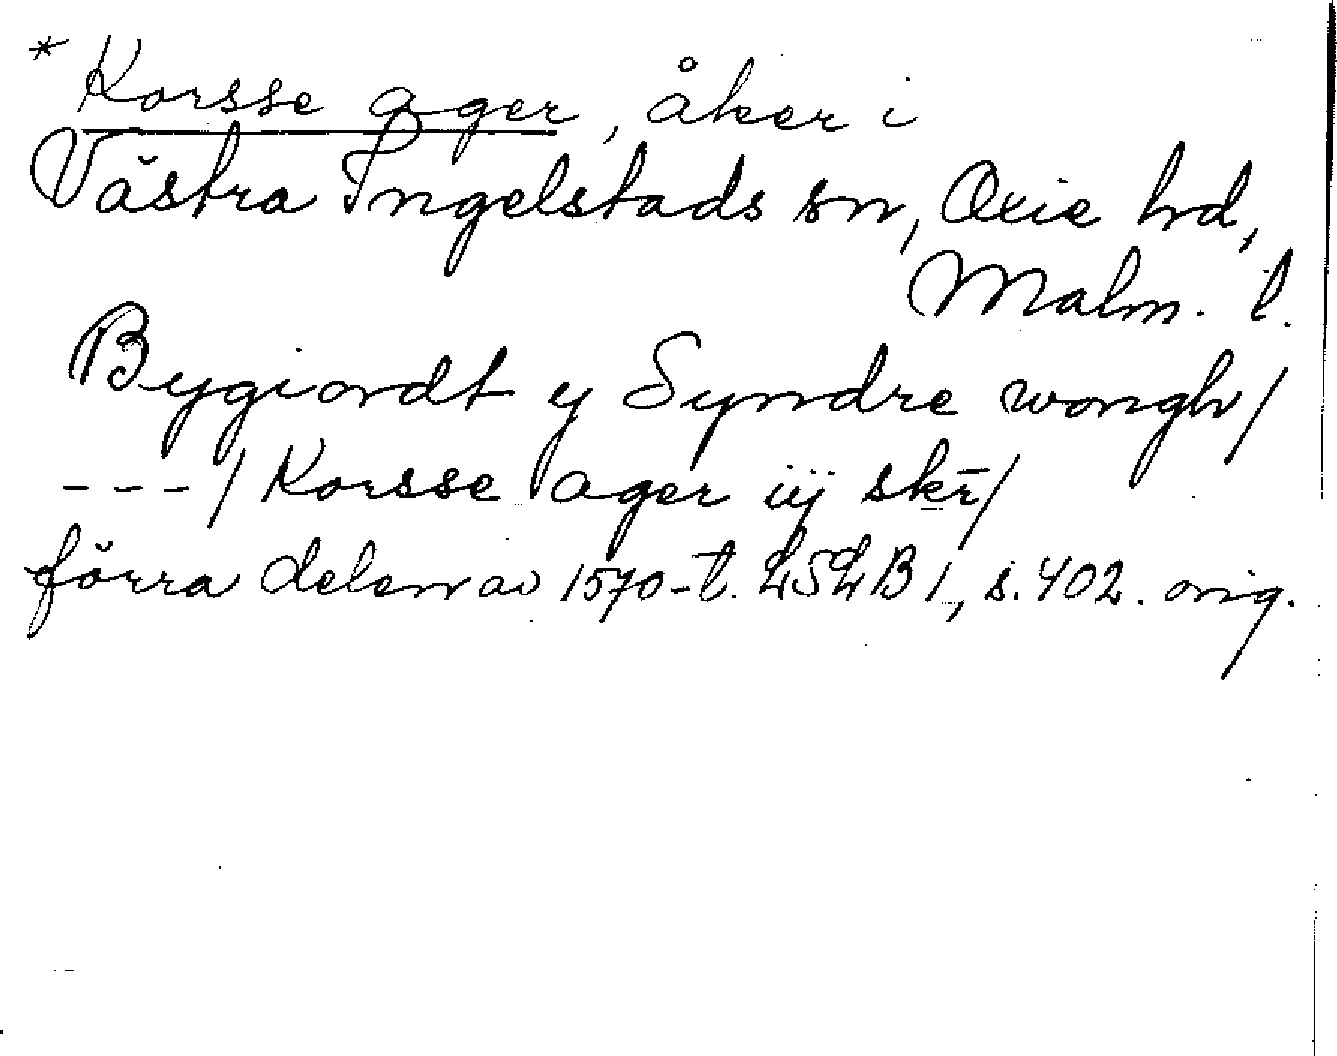 * Korsse ager, åker i
Västra Ingelstads sn, Oxie hd,
Malm. l.
Bygiordt y Syndre wongh/
---/ Korsse ager iij skr̄/
förra delen av 1570-t. LSLB 1, s. 402. orig.